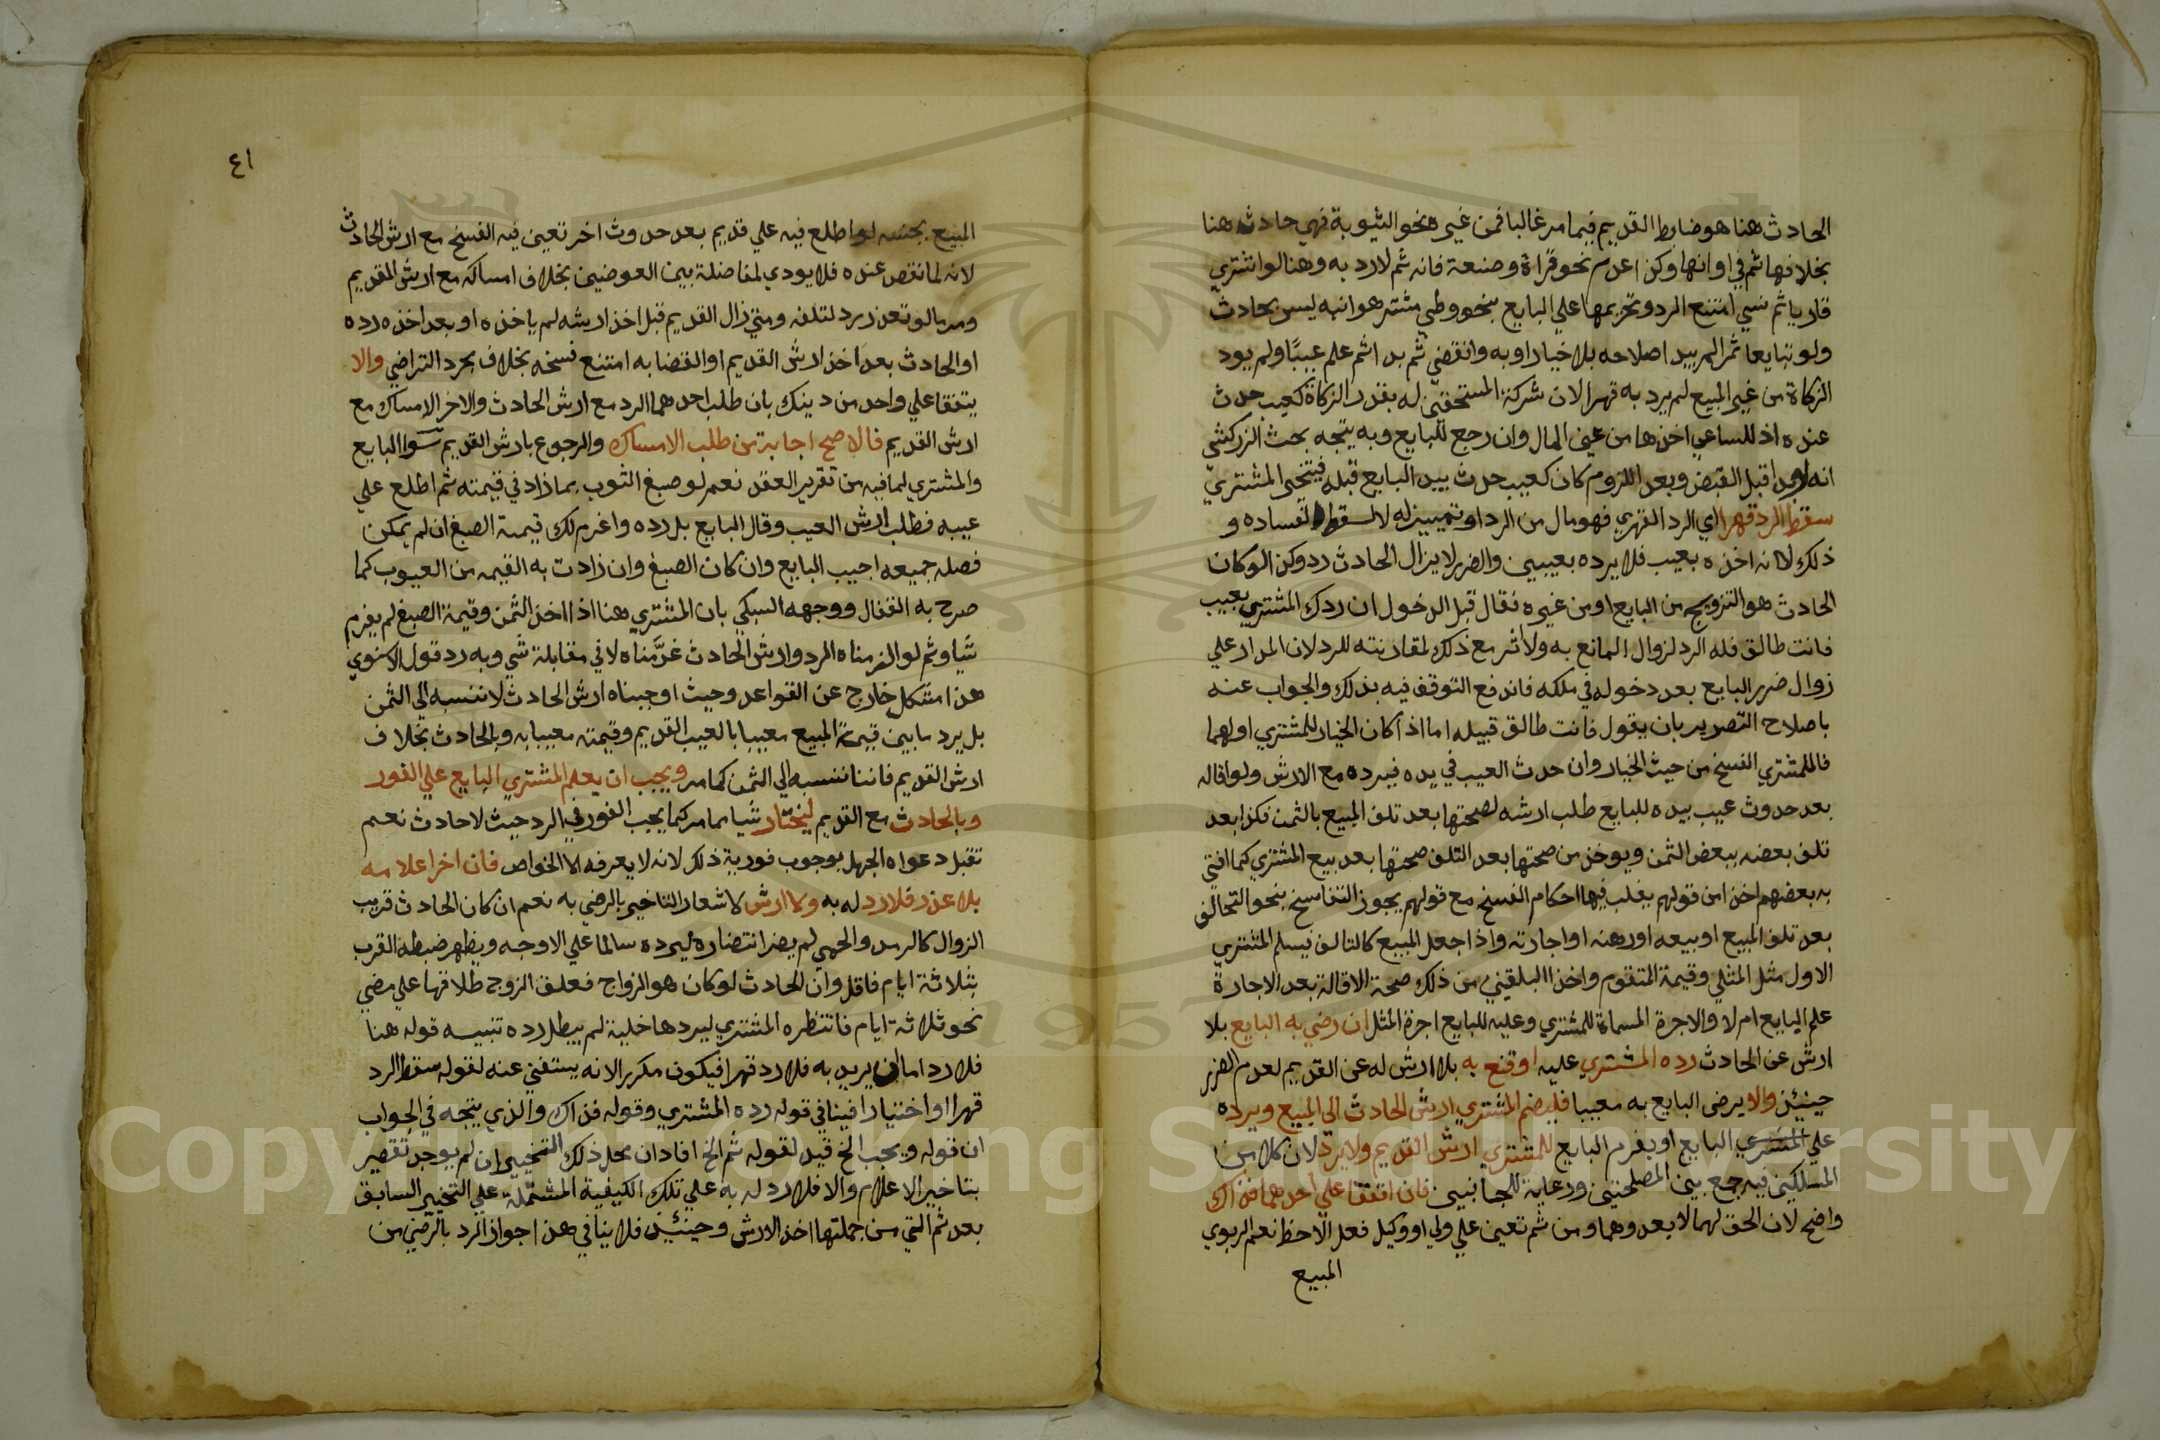 الحادث هنا هو ضابط القديم فيما مر غالبا فمن غيره نحو الثيوبة فهي حادث هنا
بخلافها ثم في اوانها وكذا عدم نحو قراة وصنعة فانه ثم لا رد به وهنا لو اشتري
قاريا ثم نسي امتنع الرد وتحريمها علي البايع بنحو وطي مشتر هو ابنه ليس بحادث
ولو تبايعا ثمرا لم يبد صلاحه بلا خيار او به وانقضي ثم بدا ثم علم عيبا ولم يود
الزكاة من غير المبيع لم يرد به قهرا لان شركة المستحقين له بقدر الزكاة كعيب حدث
عنده اذ للساعي اخذها من عين المال وان رجع للبايع وبه يتجه بحث الزركشي
انه لو بدا قبل القبض وبعد اللزوم كان كعيب حدث بيد البايع قبله فيتخير المشتري
سقط الرد قهرا اي الرد القهري فهو مال من الرد او تمييز له لا لسقط لفساده و
ذلك لانه اخذه بعيب فلا يرده بعيبين والضرر لا يزال الحادث رد وكذا لو كان
الحادث هو التزويج من البايع او من غيره فقال قبل الدخول ان ردك المشتري بعيب
فانت طالق فله الرد لزوال المانع به ولا اثر مع ذلك لمقارنته للرد لان المدار علي
زوال ضرر البايع بعد دخوله في ملكه فاندفع التوقف فيه بذلك والجواب عنه
باصلاح التصوير بان يقول فانت طالق قبيله اما اذا كان الخيار للمشتري او لهما
فاللمشتري الفسخ من حيث الخيار وان حدث العيب في يده فيرده مع الارش ولو اقاله
بعد حدوث عيب بيده للبايع طلب ارشه لصحتها بعد تلف المبيع بالثمن فكذا بعد
تلف بعضه ببعض الثمن ويوخذ من صحتها بعد التلف صحتها بعد بيع المشتري كما افتي
به بعضهم اخذا من قولهم يغلب فيها احكام الفسخ مع قولهم يجوز التفاسخ بنحو التحالف
بعد تلف المبيع او بيعه او رهنه او اجارته واذا جعل المبيع كالتالف يسلم المشتري
الاول مثل المثلي وقيمة المتقوم واخذ البلقيني من ذلك صحة الاقالة بعد الاجارة
علم البايع ام لا والاجرة المسماة للمشتري وعليه للبايع اجرة المثل ان رضي به البايع بلا
ارش عن الحادث رده المشتري عليه او قنع به بلا ارش له عن القديم لعدم الضرر
حينيذ والا يرضي البايع به معيبا فليضم المشتري ارش الحادث الي المبيع ويرده
علي المشتري البايع او يغرم البايع للمشتري ارش القديم ولا يرد لان كلا من
المسلكين فيه جمع بين المصلحتين ورعاية للجانبين فان اتفقا علي احدهما فذاك
واضح لان الحق لهما لا يعدوهما ومن ثم تعين علي ولي او وكيل فعل الاحظ نعم الربوي
المبيع
٤١
المبيع بجنسه لو اطلع فيه علي قديم بعد حدوث اخر تعين فيه الفسخ مع ارش الحادث
لانه لما نقص عنده فلا يودي لمفاضلة بين العوضين بخلاف امساكه مع ارش القديم
ومر ما لو تعذر رد لتلفه ومتي زال القديم قبل اخذ ارشه لم ياخذه او بعد اخذه رده
او الحادث بعد اخذ ارش القديم او القضا به امتنع فسخه بخلاف مجرد التراضي والا
يتفقا علي واحد من ذينك بان طلب احدهما الرد مع ارش الحادث والاخر الامساك مع
ارش القديم فالاصح اجابة من طلب الامساك والرجوع بارش القديم سوا البايع
والمشتري لما فيه من تقرير العقد نعم لو صبغ الثوب بما زاد في قيمته ثم اطلع علي
عيبه فطلب ارش العيب وقال البايع بل رده واغرم لك قيمة الصبغ ان لم يمكن
فصله جميعه اجيب البايع وان كان الصبغ وان زادت به القيمه من العيوب كما
صرح به القفال ووجهه السبكي بان المشتري هنا اذا اخذ الثمن وقيمة الصبغ لم يغرم
شيا وثم لو الزمناه الرد وارش الحادث غرمناه لا في مقابلة شي وبه رد قول الاسنوي
هذا مشكل خارج عن القواعد وحيث اوجبناه ارش الحادث لا ننسبه الي الثمن
بل يرد ما بين قيمة المبيع معيبا بالعيب القديم وقيمته معيبا به وبالحادث بخلاف
ارش القديم فاننا ننسبه الي الثمن كما مر ويجب ان يعلم المشتري البايع علي الفور
وبالحادث مع القديم ليختار شيا مما مر كما يجب الفور في الرد حيث لا حادث نعم
تقبل دعواه الجهل بوجوب فورية ذلك لانه لا يعرفه الا الخواص فان اخر اعلامه
بلا عذر فلا رد له به ولا ارش لاشعار التاخير بالرضي به نعم ان كان الحادث قريب
الزوال كالرمد والحمي لم يضر انتضاره ليرده سالما علي الاوجه ويظهر ضبطه القرب
بثلاثة ايام فاقل وان الحادث لو كان هو الزواج فعلق الزوج طلاقها علي مضي
نحو ثلاثة ايام فانتظره المشتري ليردها خلية لم يبطل رده تنبيه قوله هنا
فلا رد اما ان يريد به فلا رد قهرا فيكون مكررا لانه يستغني عنه لقوله سقط الرد
قهرا او اختيارا فينافي قوله رده المشتري وقوله فذاك والذي يتجه في الجواب
ان قوله ويجب الخ قيد لقوله ثم الخ افاد ان محل ذلك التخيير ان لم يوجد تقصير
بتاخير الاعلام والا فلا رد له به علي تلك الكيفية المشتملة علي التخيير السابق
بعد ثم التي من جملتها اخذ الارش وحينيذ فلا ينافي هذا جواز الرد بالرضي من